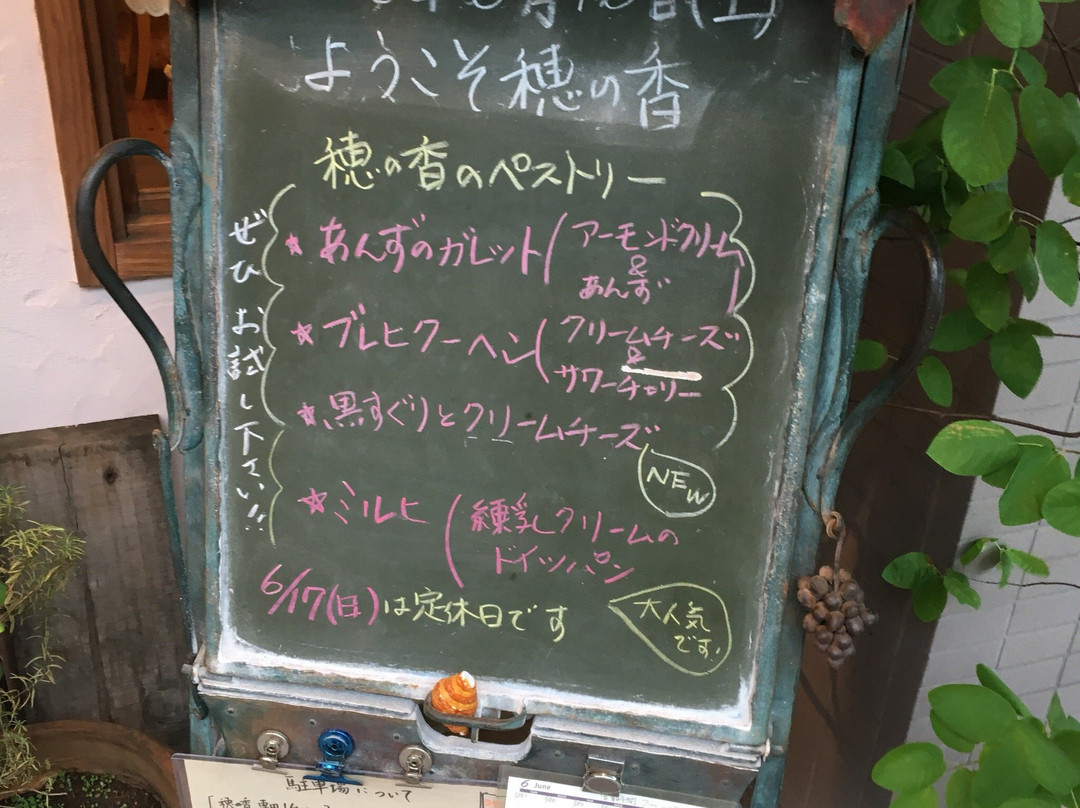 ようこそ穂の香
穂の香のペストリー
ぜひお試し下さい!!
★あんずのガレット(アーモンドクリーム
&
あんず)
★ブレヒクーヘン(クリームチーズ
&
サワーチェリー
★黒すぐりとクリームチーズ
NEW
★ミルヒ(練乳クリームの
ドイツパン
大人気
です!
6/17(日)は定休日です
駐車場について
6 June